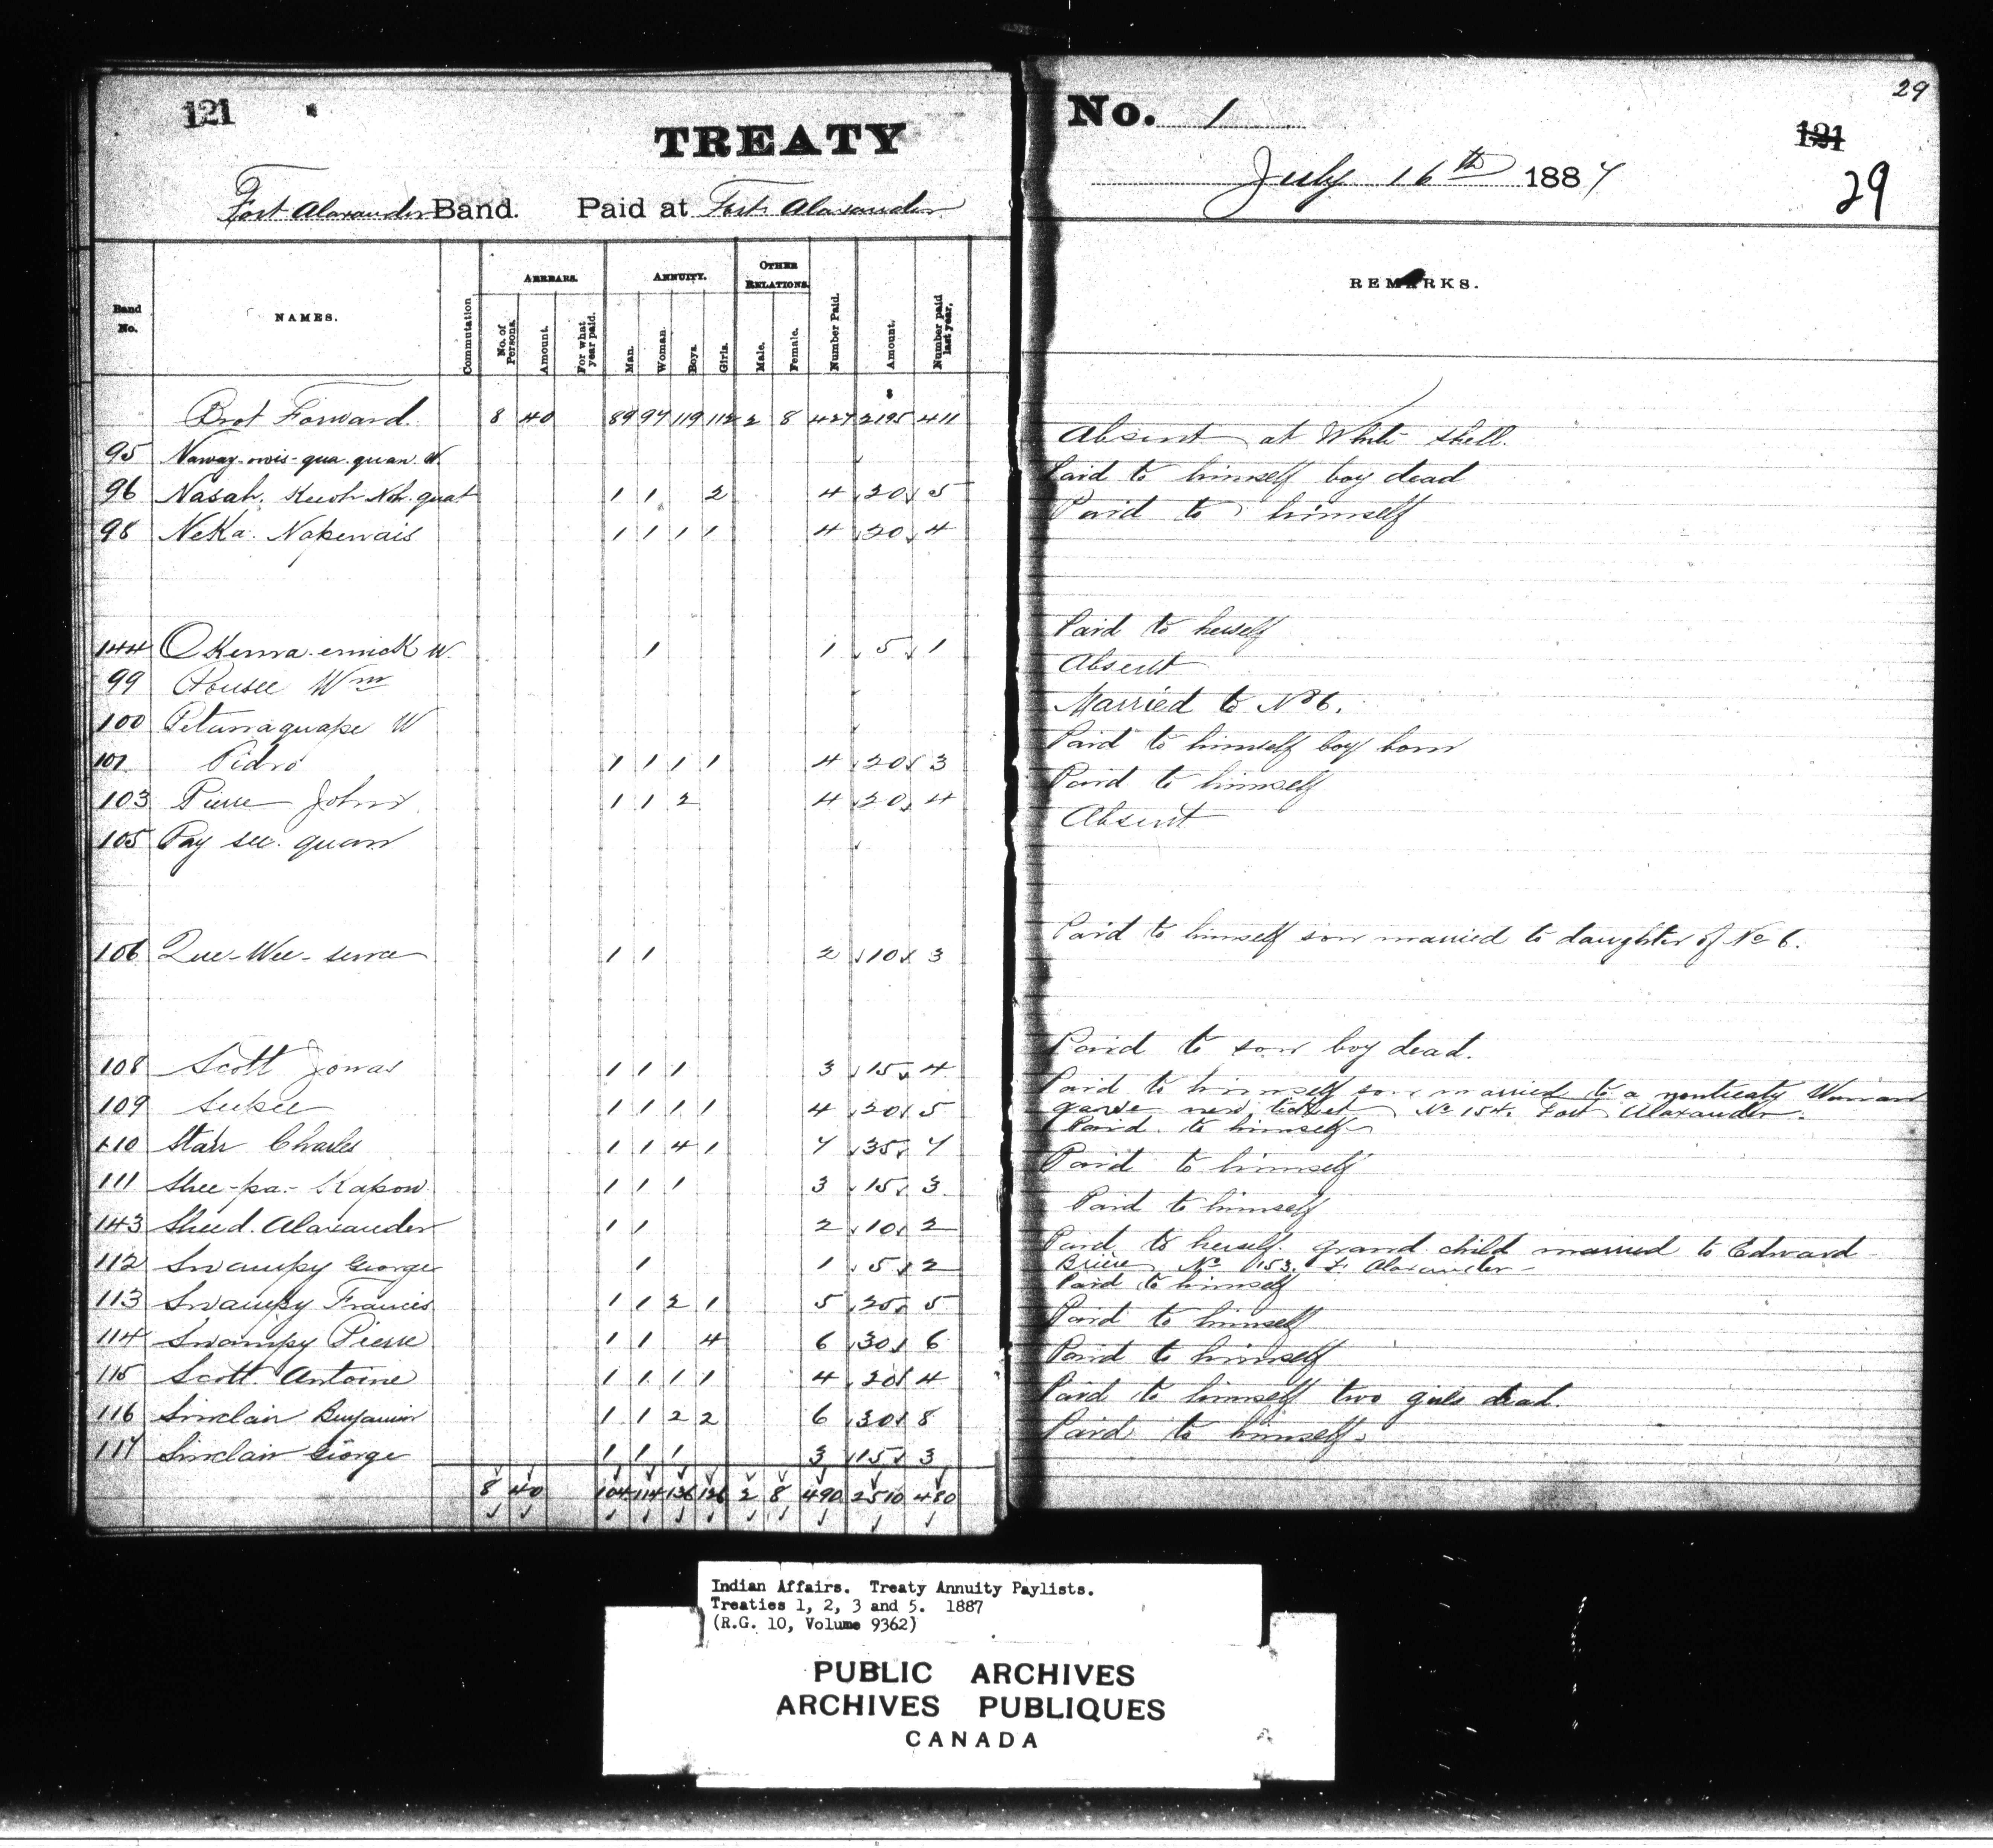 121
TREATY
Fort Alaxander Band. Paid at Fort Alaxander
Band No. NAMES. Commutation ARREARS. No. of Persons. Amount. For what year paid. ANNUITY. Man. Woman. Boys. Girls. OTHER RELATIONS. Male. Female. Number Paid. Amount. Number paid last year.
Brot Forward. 8 40 89 97 119 112 2 8 427 2195 411
95
96 Nasah. Keesh Noh. quat 1 1 2 4 20 5
98 NeKa. Napewais 1 1 1 1 4 20 4
144 W. 1 1 5 1
99 Wm
100 W
101 Pidro 1 1 1 1 4 20 3
103 Pierre John 1 1 2 4 20 4
105 Pay see. quan
106 Que-Wee-sence 1 1 2 10 3
108 Scott Jonas 1 1 1 3 15 4
109 Seepee 1 1 1 1 4 20 5
110 Starr Charles 1 1 4 1 7 35 7
111 Shee-pa-Kapow 1 1 1 3 15 3
143 Sheed. Alaxander 1 1 2 10 2
112 Swampy George 1 1 5 2
113 Swampy Francis 1 1 2 1 5 25 5
114 Swampy Pierre 1 1 4 6 30 6
115 Scott. Antoine 1 1 1 1 4 20 4
116 Sinclair Benjamin 1 1 2 2 6 30 8
117 Sinclair George 1 1 1 3 15 3
8 40 104 114 136 126 2 8 490 2510 480
29
No. 1
121
July 16th 1887
29
REMARKS.
Absent at White Shell.
Paid to himself boy dead
Paid to himself
Paid to herself
Absent
Married to No 6.
Paid to himself boy born
Paid to himself
Absent
Paid to himself son married to daughter of No 6.
Paid to son boy dead.
Paid to himself son married to a nontreaty Woman
gave new ticket No 154. Fort Alaxander.
Paid to himself
Paid to himself
Paid to himself
Paid to herself. grand child married to Edward
Briere No 153. Ft Alaxander
Paid to himself
Paid to himself
Paid to himself
Paid to himself two girls dead.
Paid to himself.
Indian Affairs. Treaty Annuity Paylists.
Treaties 1, 2, 3 and 5. 1887
(R.G. 10, Volume 9362)
PUBLIC ARCHIVES
ARCHIVES PUBLIQUES
CANADA